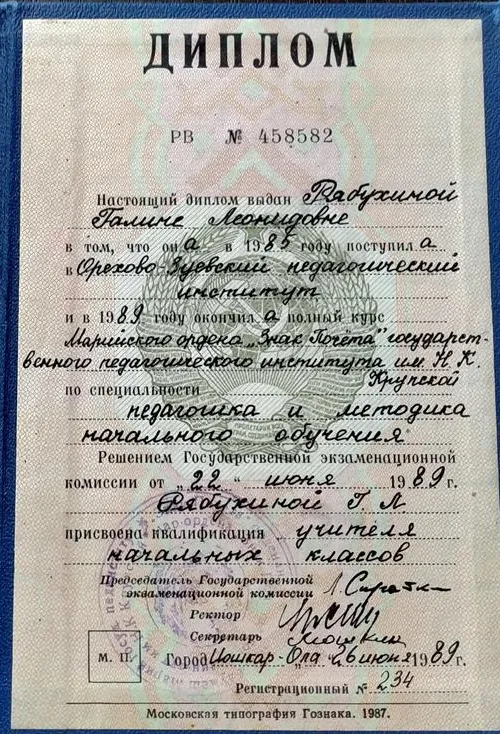 ДИПЛОМ
РВ № 458582
Настоящий диплом выдан Рябухиной
Галине Леонидовне
в том, что она в 1985 году поступила
в Орехово-Зуевский педагогический
институт
и в 1989 году окончила полный курс
Марийского ордена „Знак Почёта" государст-
венного педагогического института им Н. К.
Крупской
по специальности
педагогика и методика
начального обучения
Решением Государственной экзаменационной
комиссии от „22" июня 1989 г.
Рябухиной Г. Л
присвоена квалификация учителя
начальных классов
Председатель Государственной
экзаменационной комиссии
Ректор
Секретарь
М. П. Город Йошкар-Ола 26 июня 1989 г.
Регистрационный № 234
Московская типография Гознака. 1987.